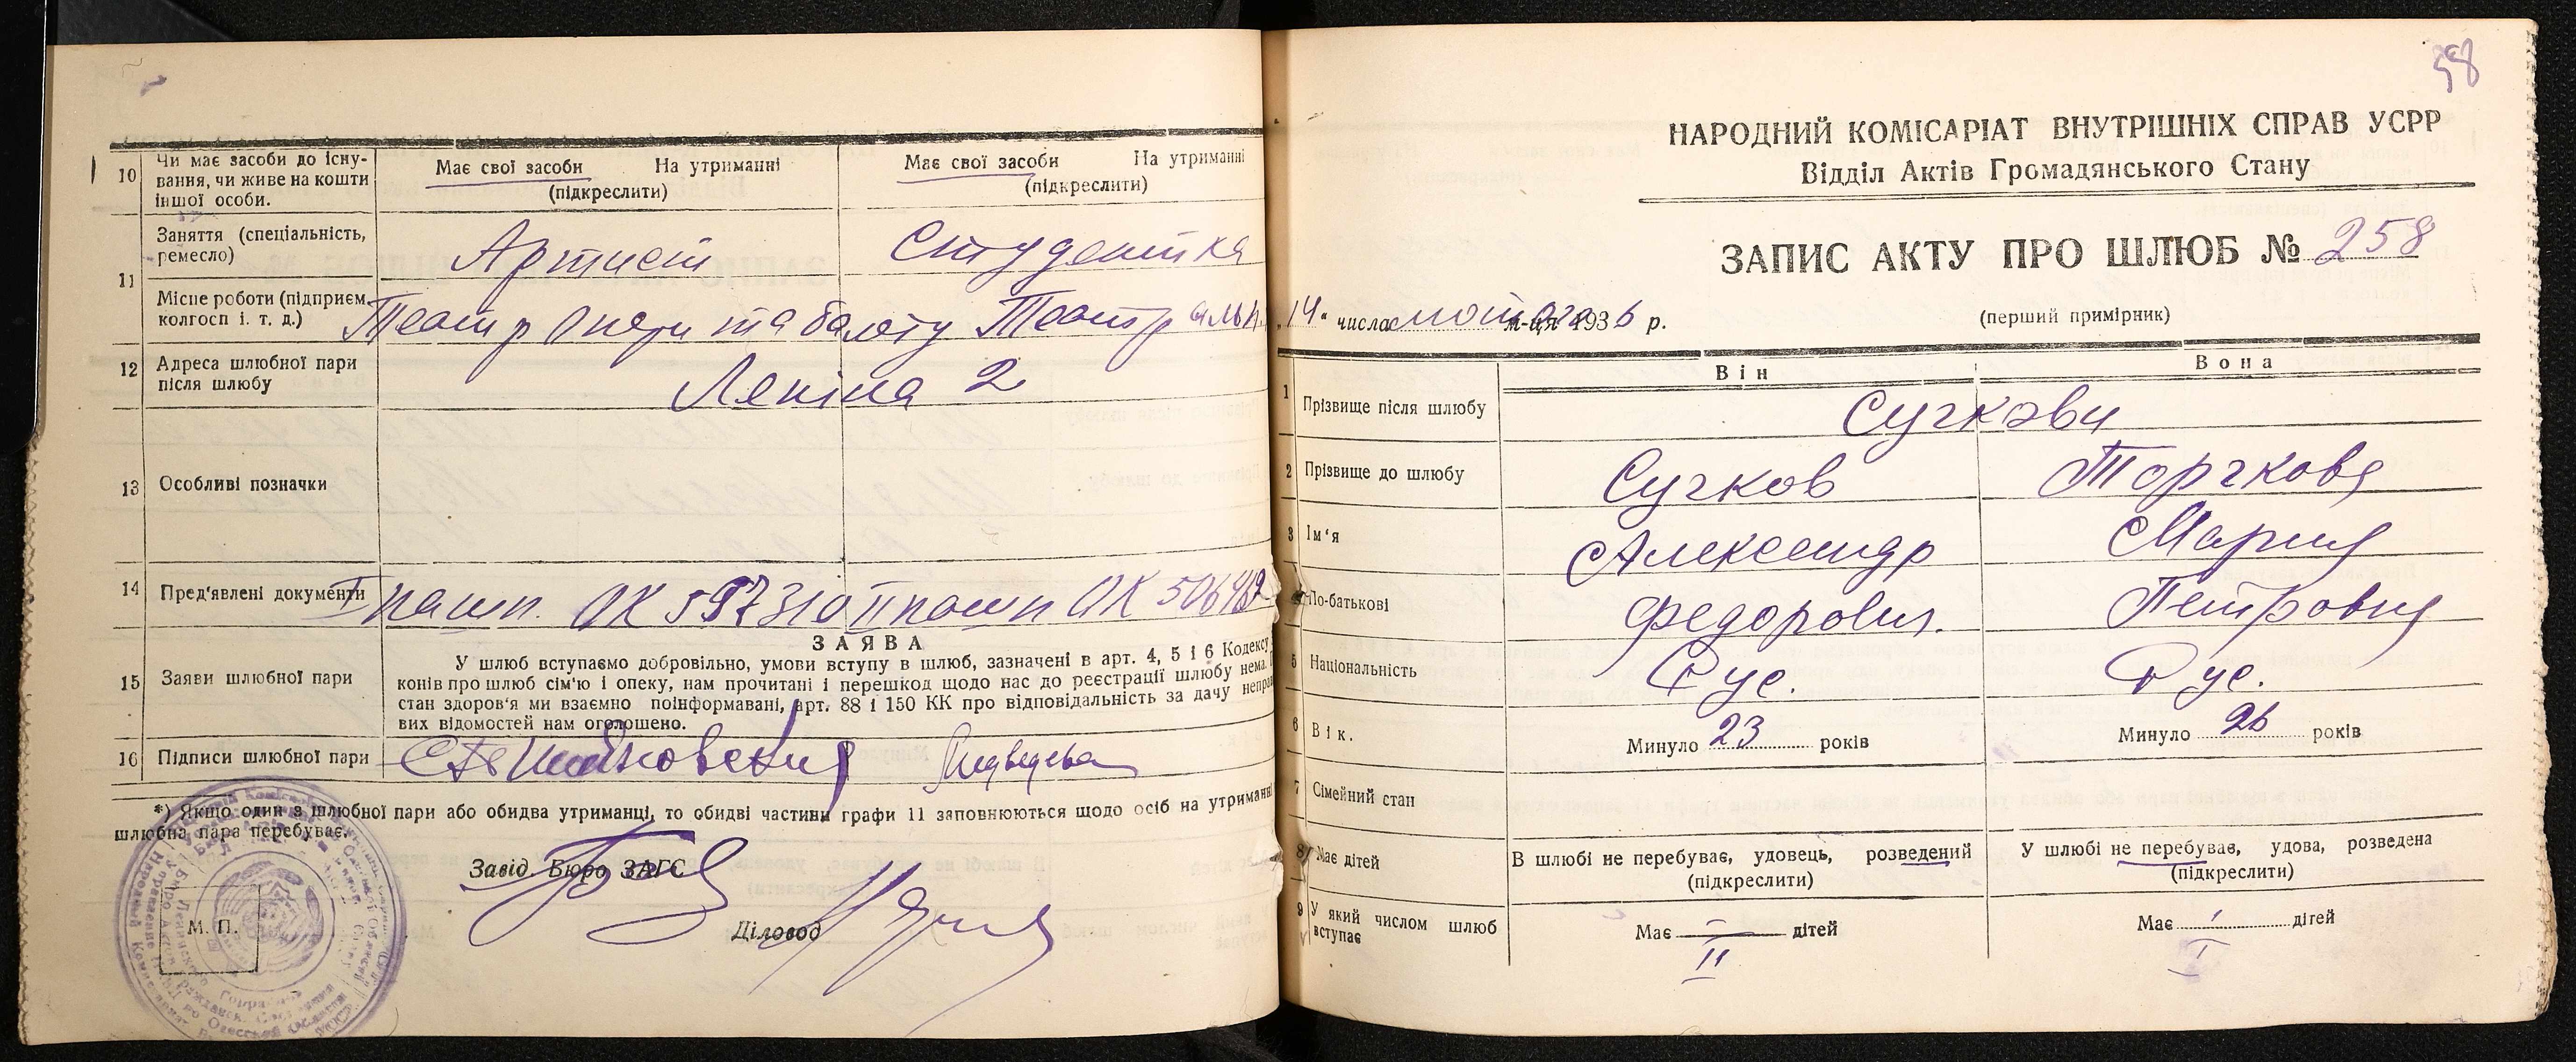 10 Чи має засоби до існу-
вання, чи живе на кошти
іншої особи.
Має свої засоби На утриманні
(підкреслити)
Має свої засоби На утриманні
(підкреслити)
11 Заняття (спеціальність,
ремесло)
Артист
Студентка
Місце роботи (підприєм.
колгосп і. т. д.)
Театр Опери та балету Театральн.
12 Адреса шлюбної пари
після шлюбу
Леніна 2
13 Особливі позначки
14 Пред'явлені документи
I пашп. ОК 597310 II пашп ОК
15 Заяви шлюбної пари
ЗАЯВА
У шлюб вступаємо добровільно, умови вступу в шлюб, зазначені в арт. 4, 5 і 6 Кодексу
конів про шлюб сім'ю і опеку, нам прочитані і перешкод щодо нас до реєстрації шлюбу нема.
стан здоров'я ми взаємно поінформавані, арт. 88 і 150 КК про відповідальність за дачу неправ
вих відомостей нам оголошено.
16 Підписи шлюбної пари
*) Якщо один з шлюбної пари або обидва утриманці, то обидві частини графи 11 заповнюються щодо осіб на утриманні
шлюбна пара перебуває.
Завід. Бюро ЗАГС
Діловод
М. П.
98
НАРОДНИЙ КОМІСАРІАТ ВНУТРІШНІХ СПРАВ УСРР
Відділ Актів Громадянського Стану
ЗАПИС АКТУ ПРО ШЛЮБ № 258
„14" числа лютого м-ця 1936 р.
(перший примірник)
Він Вона
1 Прізвище після шлюбу
Сучкови
2 Прізвище до шлюбу
Сучков Торчкова
3 Ім'я
Александр Мария
4 По-батькові
Федорович. Петровна
5 Національність
Рус. Рус.
6 Вік.
Минуло 23 років Минуло 26 років
7 Сімейний стан
8 Має дітей
В шлюбі не перебуває, удовець, розведений
(підкреслити)
У шлюбі не перебуває, удова, розведена
(підкреслити)
9 У який числом шлюб
вступає
Має — дітей
II
Має дітей
I